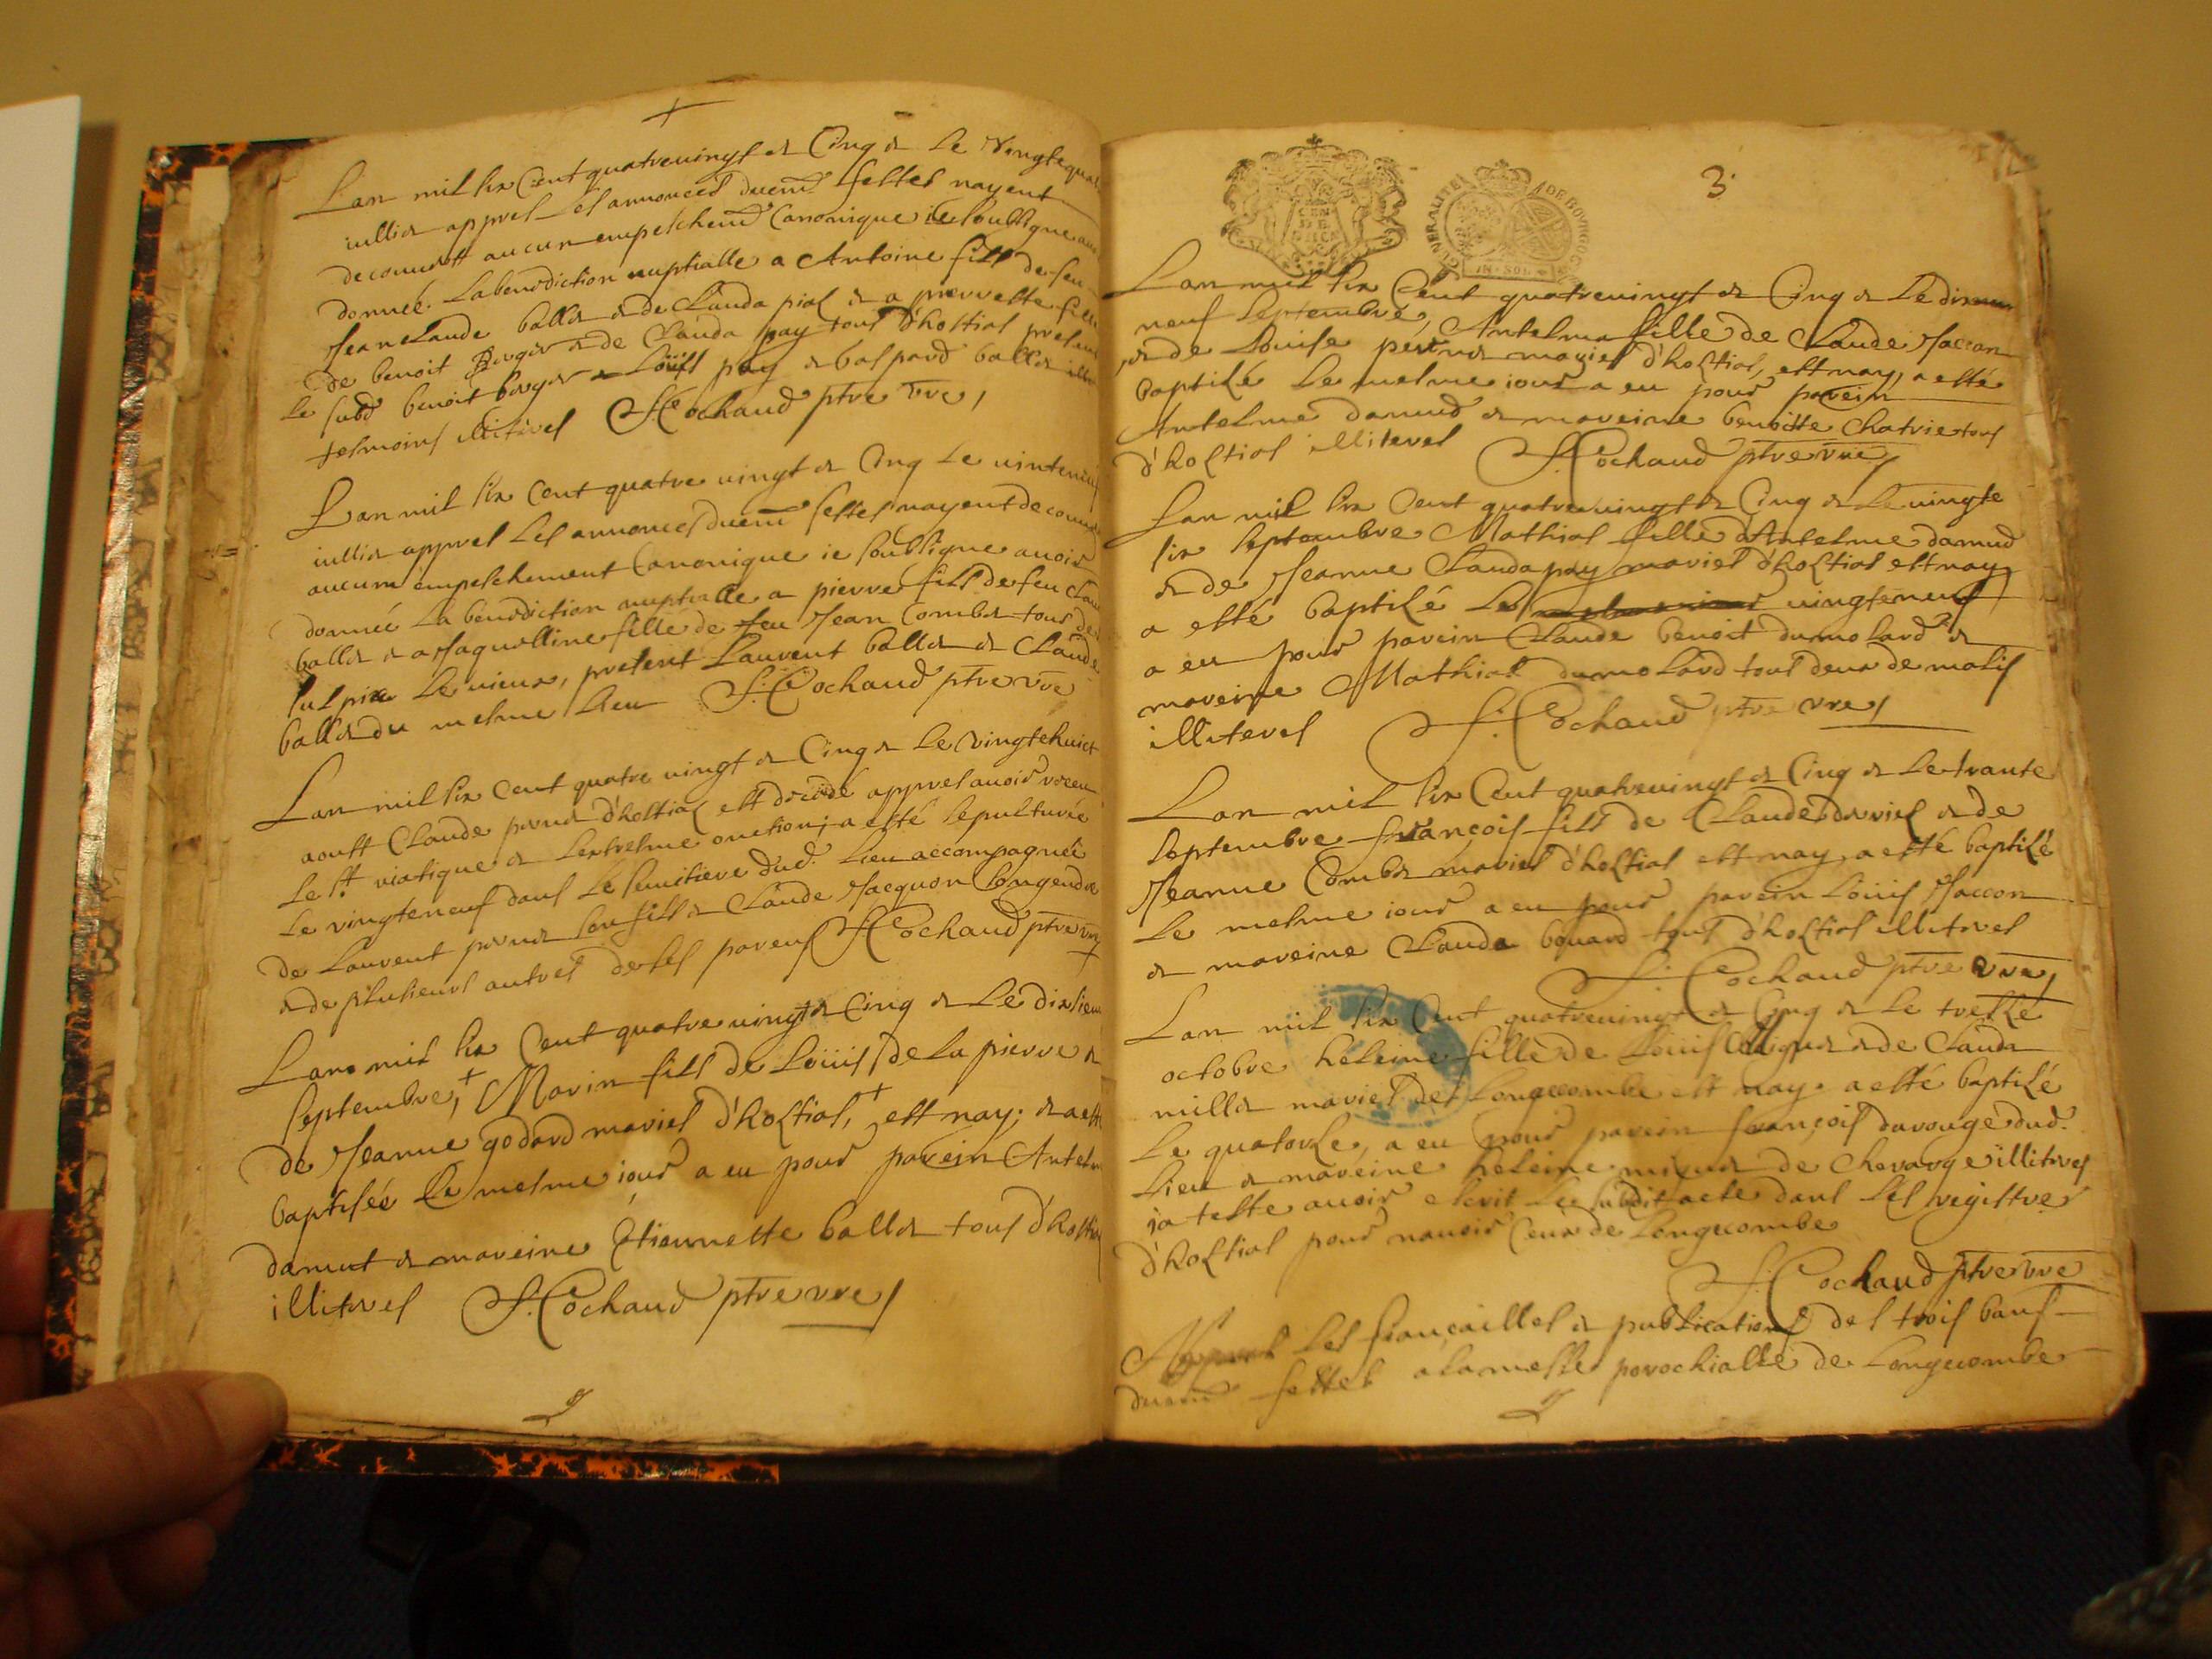 Lan mil six Cent quatrevingt et Cinq et le vingtequat
iullier appres les annonces duem̄ fettes nayent
decouuert aucun empeschem̄ Canonique ie soubsigne auoir
donneé. La benediction nuptialle a Antoine fils de feu
Jean claude ballet et de Clauda pial et a pierrette fille
de benoit Boyer et de Clauda pay tous d'hostial present
le subd benoit boyer et Loüis pay et Gaspard ballet
tesmoins illiterés S. Cochaud ptre vre,
Lan mil six Cent quatre vingt et Cinq le vinteneuf
iullier appres les annonces duem̄ fettes nayent decouuert
aucune empeschement Canonique ie soubsigne auoir
donneé la benediction nuptialle a pierre fils de feu Claude
ballet et a Jaquelline fille de feu Jean Combet tous de
sulpice le vieux, present Laurent ballet et Claude
ballet du mesme lieu S. Cochaud ptre vre
Lan mil six Cent quatre vingt et Cinq et le vingtehuict
aoust Claude perret d'hostial est decedé appres auoir receu
le St. viatique et lextresme onction, a esté sepulturée
le vingteneuf dans le semitiere dud. lieu accompagneé
de Laurent perret son fils et Claude Jacquon son gendre
et de plusieurs autres de ses parens S. Cochaud ptre vre
Lan mil six Cent quatre vingt et Cinq et le dixsieme
septembre, + Marin fils de Loüis de la pierre et
de Jeanne godard mariés d'hostial, + est nay, et a esté
baptiseé le mesme iour a eu pour parein Antelme
damut et mareine Etiennette ballet tous d'hostial
illiterés S. Cochaud ptre vre
GENERALITE DE BOVRGOGNE
IN·SOL
3.
Lan mil six Cent quatrevingt et Cinq et le dix
neuf septembre, Antelma fille de Claude Jaccon
et de Louise perret mariés d'hostial, est nay, a esté
baptisé le mesme iour a eu pour parein
Antelme damud et mareine benoitte Chatrie tous
d'hostial illiterés S. Cochaud ptre vre
Lan mil six Cent quatrevingt et Cinq et le vingte
six septembre Mathial fille d'Antelme damud
et de Jeanne Clauda pay mariés d'hostial est nay
a esté baptisé le vingteneuf
a eu pour parein Claude benoit dumolard et
mareine Mathial dumolard tous deux de
illiterés S. Cochaud ptre vre
Lan mil six Cent quatrevingt et Cinq et le trante
septembre françois fils de Claude et de
Jeanne Combet mariés d'hostial est nay, a esté baptisé
le mesme iour a eu pour parein Loüis Jaccon
et mareine Clauda bouard tous d'hostial illiterés
S. Cochaud ptre vre,
Lan mil six Cent quatrevingt et Cinq et le treize
octobre heleine fille de Loüis et de Clauda
millet mariés de Longecombe est nay. a esté baptisé
le quatorze, a eu pour parein françois dud.
lieu et mareine heleine de Chevarge illiterés
ja teste auoir escrit le subdit acte dans les registres
d'hostial pour nauoir ceux de Longecombe
S. Cochaud ptre vre
Appres les fiancailles et publications des trois bans
duem̄ fettes a la messe parochialle de Longecombe